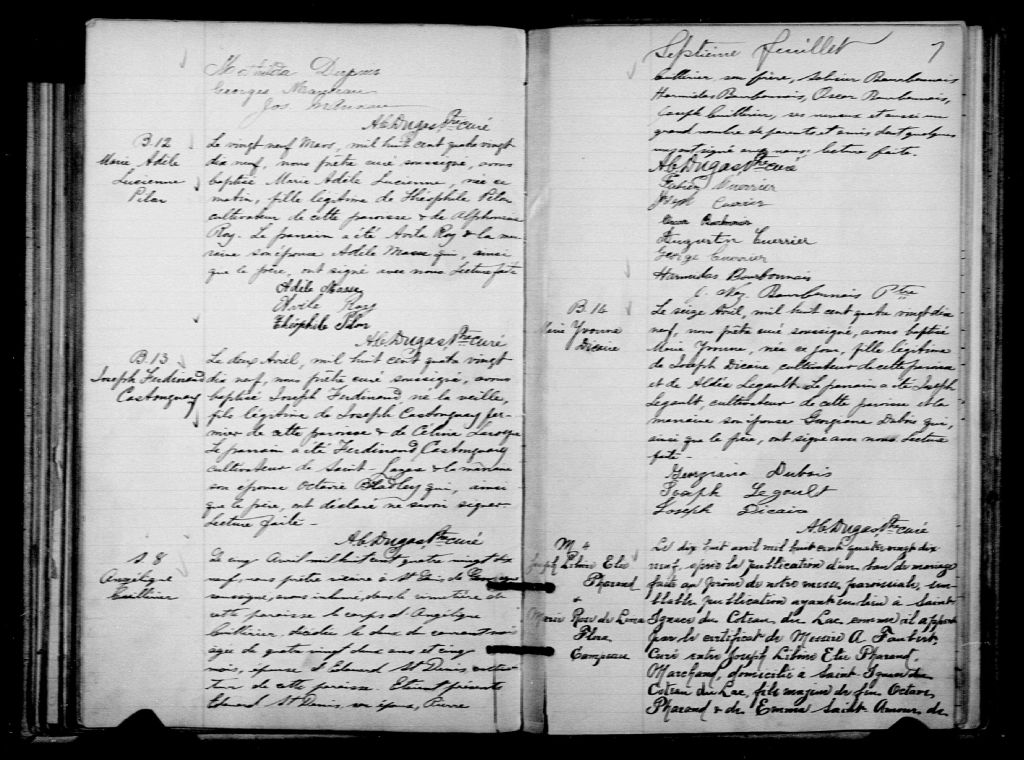 Mathilda Dupuis
Georges
Jos
A C Dugas Ptre curé
B. 12
Marie Adèle
Lucienne
Pilon
Le vingt neuf Mars, mil huit cent quatre vingt
dix neuf, nous prêtre curé soussigné, avons
baptisé Marie Adèle Lucienne, née ce
matin, fille légitime de Théophile Pilon
cultivateur de cette paroisse & de Alphonsine
Roy. Le parrain a été Avila Roy & la mar-
raine son épouse Adèle Masse qui, ainsi
que le père, ont signé avec nous Lecture faite
Adèle Masse
Avila Roy
Théophile Pilon
A C Dugas Ptre curé
B. 13
Joseph Ferdinand
Castonguay
Le deux Avril, mil huit cent quatre vingt
dix neuf, nous prêtre curé soussigné, avons
baptisé Joseph Ferdinand, né la veille,
fils légitime de Joseph Castonguay fer-
mier de cette paroisse & de Celina Larocque
Le parrain a été Ferdinand Castonguay
cultivateur de Saint-Lazare & la marraine
son épouse Octavie qui, ainsi
que le père, ont déclaré ne savoir signer
Lecture faite -
A C Dugas, Ptre curé
S. 8
Angélique
Cuillier
Le cinq Avril mil huit cent quatre vingt dix
neuf, nous prêtre vicaire à St
soussigné, avons inhumé, dans le cimetière de
cette paroisse le corps d'Angélique
décédée le deux du courant mois
agée de quatre vingt deux ans et cinq
mois, épouse d'Edouard St Denis, cultiva-
teur de cette paroisse. Etaient présents
Edouard St Denis, son époux, Pierre
Septième feuillet 7
son frère, Bourbonnais
Harmidas Bourbonnais, Oscar Bourbonnais,
Joseph Cuillier, ses neveux et aussi un
grand nombre de parents et amis dont quelques
uns ont signé avec nous, lecture faite.
A C Dugas Ptre curé
Cuerrier
Joseph Cuerrier
Augustin Cuerrier
George Cuerrier
Harmidas Bourbonnais
Bourbonnais Ptre
B. 14
Marie Yvonne
Dicaire
Le seize Avril, mil huit cent quatre vingt dix
neuf, nous prêtre curé soussigné, avons baptisé
Marie Yvonne, née ce jour, fille légitime
de Joseph Dicaire, cultivateur de cette paroisse
et de Alda Legault. Le parrain a été Joseph
Legault, cultivateur de cette paroisse et la
marraine son épouse Georgiana Dubois qui,
ainsi que le père, ont signé avec nous Lecture
faite -
Georgiana Dubois
Joseph Legault
Joseph Dicaire
A C Dugas, Ptre curé
M 4
Joseph Libaire Elie
Pharand
&
Marie Rose de Lima
Flora
Campeau
Le dix huit avril mil huit cent quatre vingt dix
neuf, après la publication d'un ban de mariage
faite au prône de notre messe paroissiale, sem-
blable publication ayant eu lieu à Saint
Ignace du Coteau du Lac comme il appert
par le certificat de Messire A Faubert,
Curé entre Joseph Libaire Elie Pharand,
Marchand, domicilié à Saint Ignace du
Coteau du Lac, fils majeur de feu Octave
Pharand & de Emma Saint Amour de